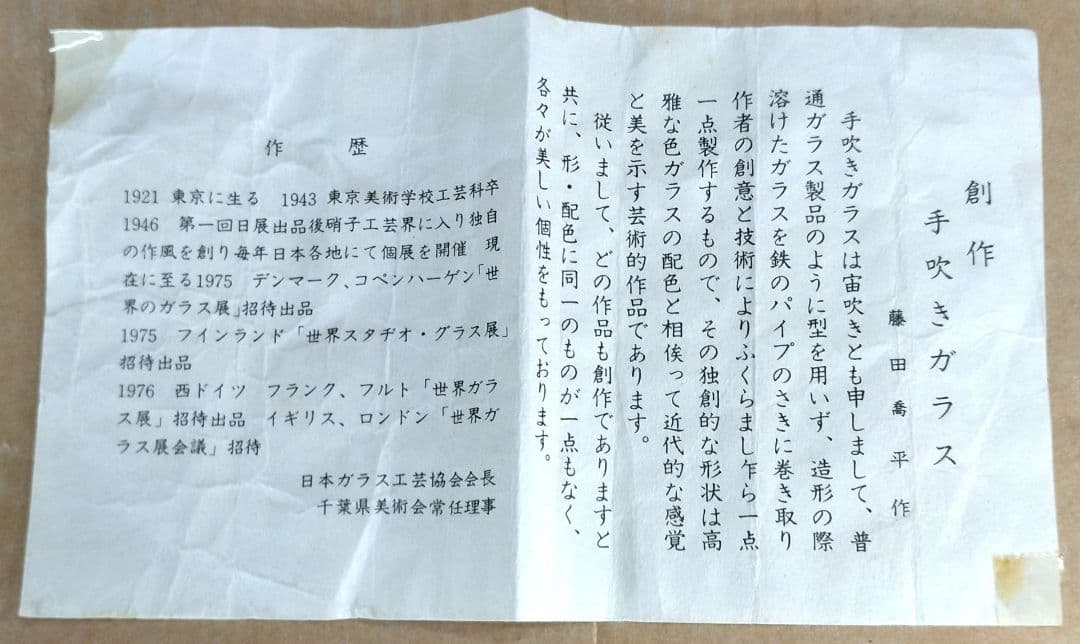 創作
手吹きガラス
藤田喬平作
手吹きガラスは宙吹きとも申しまして、普
通ガラス製品のように型を用いず、造形の際
溶けたガラスを鉄のパイプのさきに巻き取り
作者の創意と技術によりふくらまし乍ら一点
一点製作するもので、その独創的な形状は高
雅な色ガラスの配色と相俟って近代的な感覚
と美を示す芸術的作品であります。
従いまして、どの作品も創作でありますと
共に、形・配色に同一のものが一点もなく、
各々が美しい個性をもっております。
作歴
1921 東京に生る 1943 東京美術学校工芸科卒
1946 第一回日展出品後硝子工芸界に入り独自
の作風を創り毎年日本各地にて個展を開催 現
在に至る1975 デンマーク、コペンハーゲン「世
界のガラス展」招待出品
1975 フインランド「世界スタヂオ・グラス展」
招待出品
1976 西ドイツ フランク、フルト「世界ガラ
ス展」招待出品 イギリス、ロンドン「世界ガ
ラス展会議」招待
日本ガラス工芸協会会長
千葉県美術会常任理事